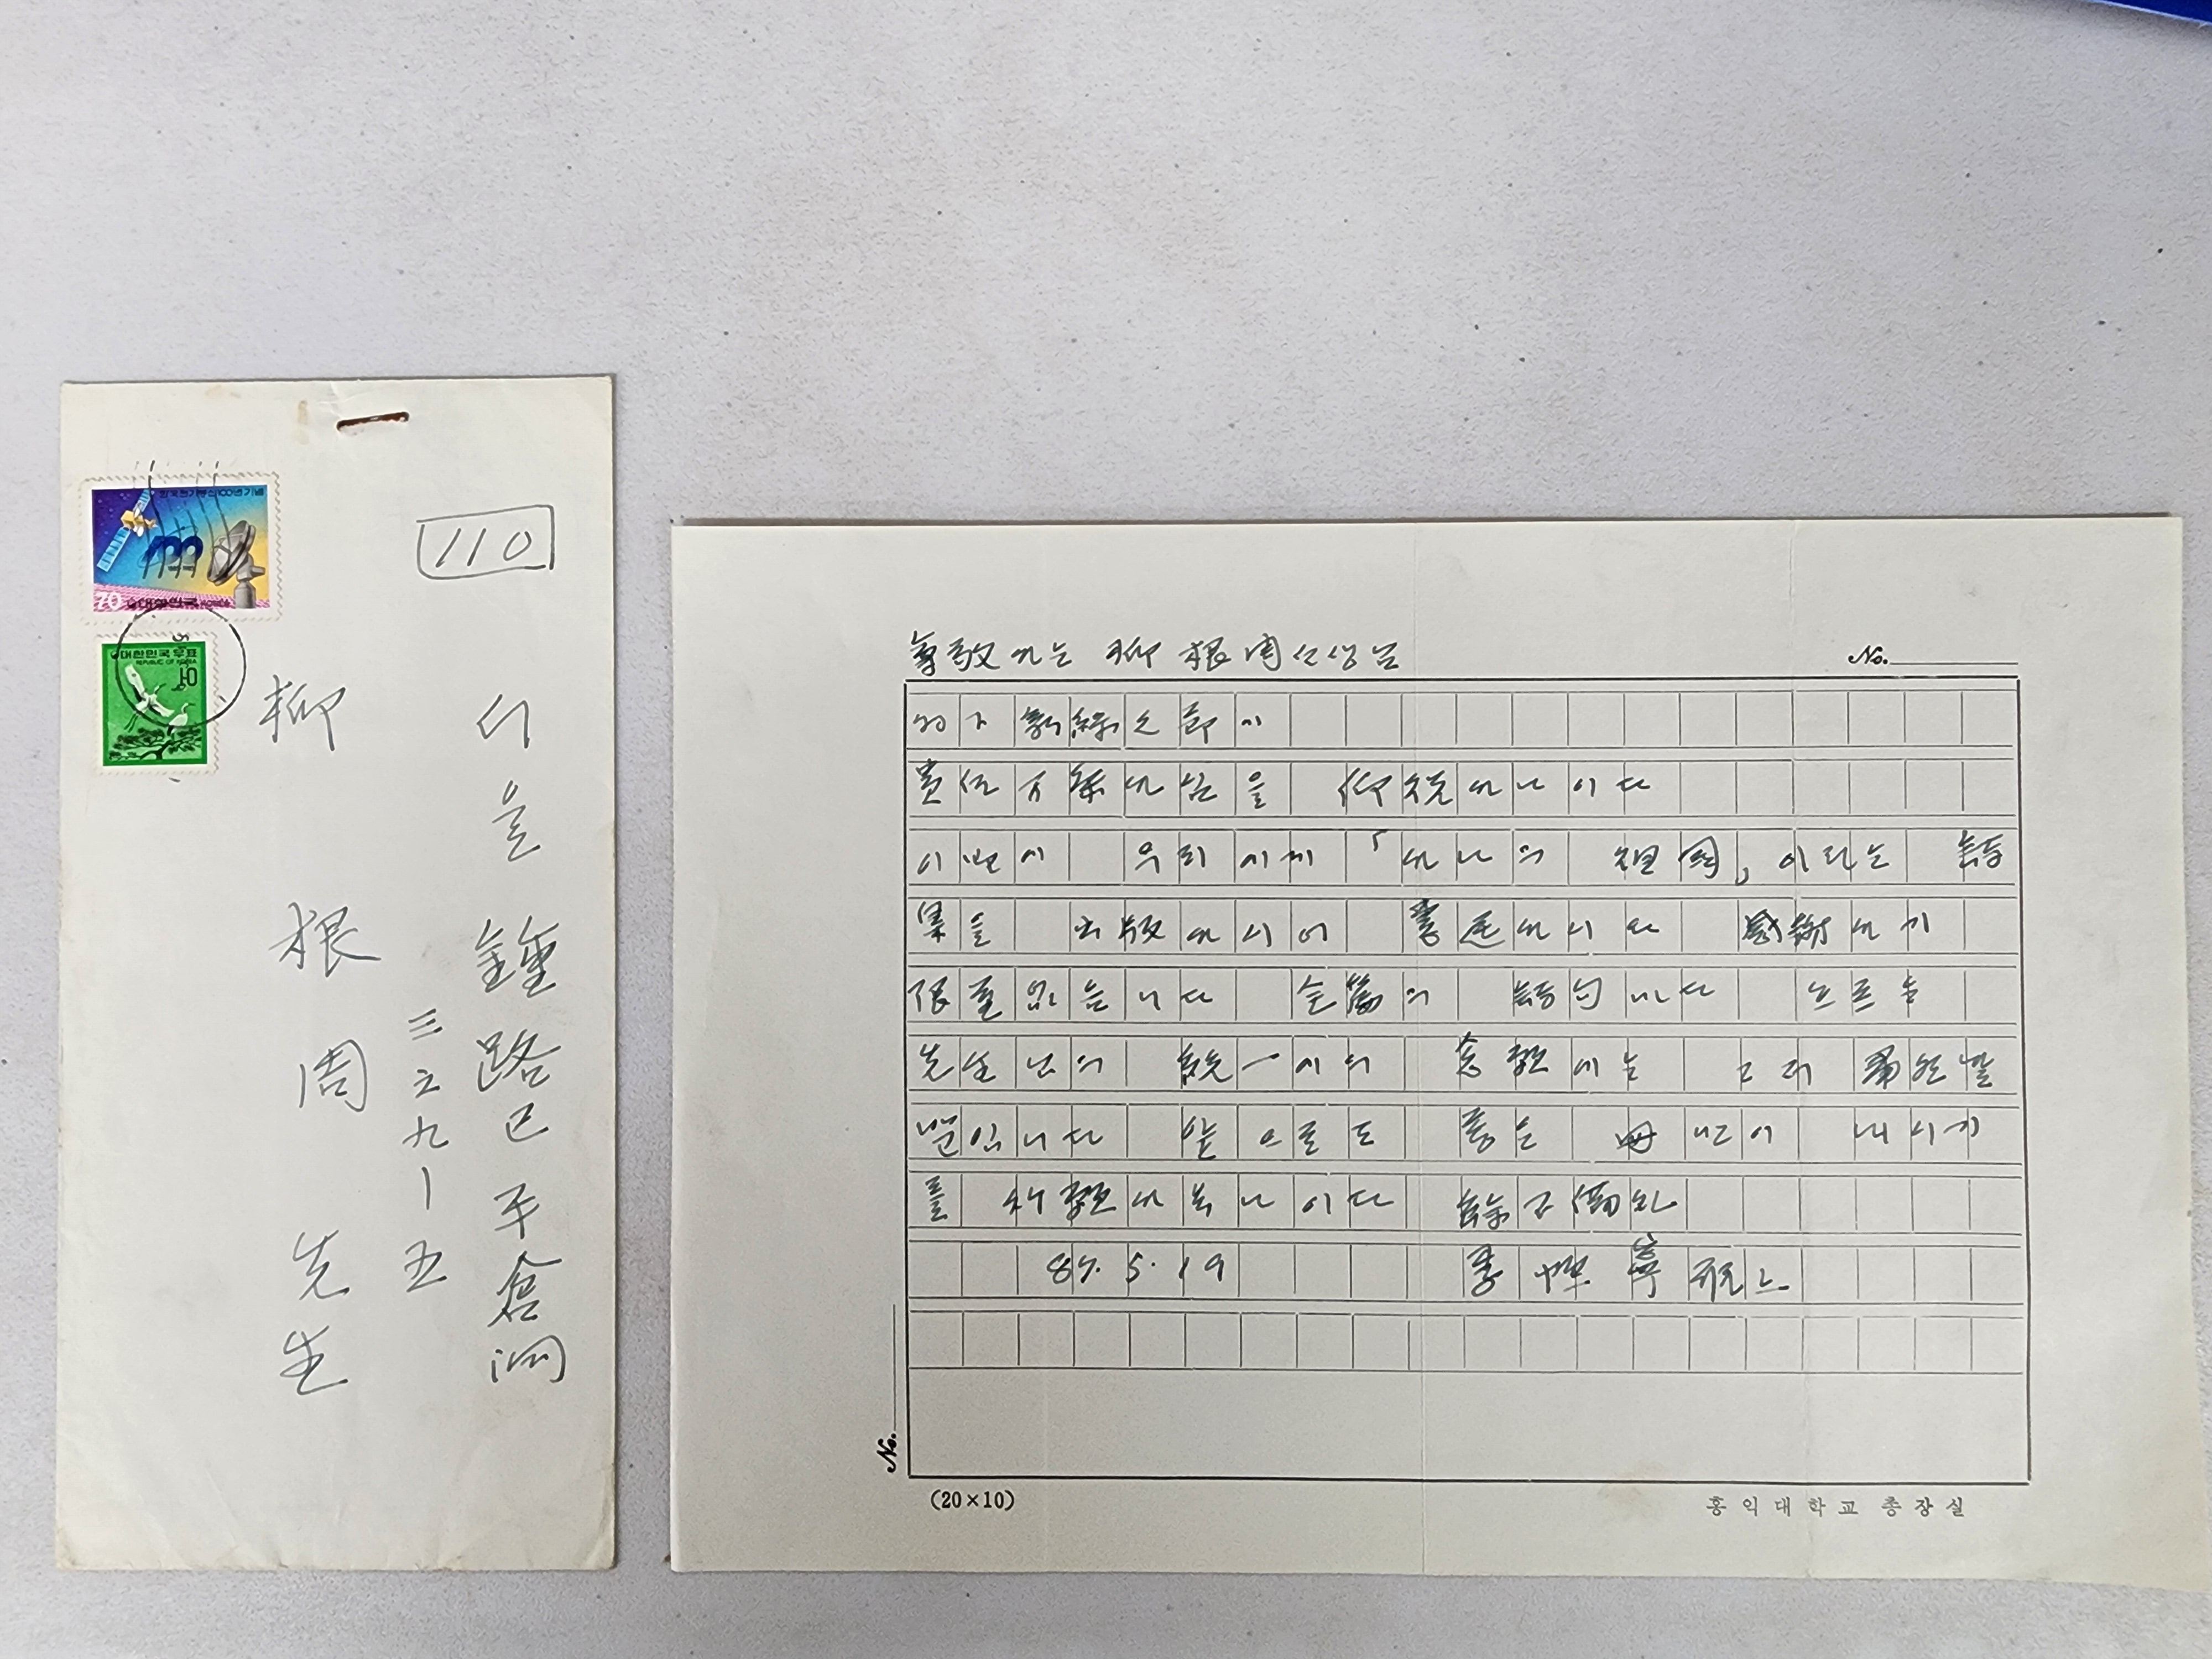 한국전기통신100년기념
70 대한민국 KOREA
대한민국우표
REPUBLIC OF KOREA
10
110
서울 鍾路區 平倉洞
三六九一五
柳根周 先生
尊敬하는 柳根周선생님
No.
新綠之節에
貴体万康하심을 仰祝하나이다
이번에 우리에게 「하나의 祖國」이라는 詩
集을 出版하시어 惠送하시와 感謝하기
限量없습니다 全篇의 詩句마다 흐르는
先生님의 統一에의 念願에는 그저
뿐입니다 앞으로도 좋은 많이 내시기
를 祈願하옵나이다 餘不備礼
87.5.19 李 寧 上
No.
(20×10)
홍익대학교 총장실